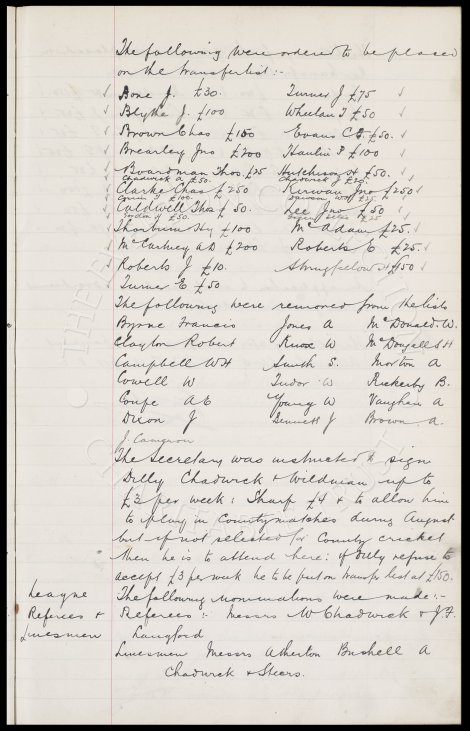 The following were ordered to be placed
on the transfer list :-
Bone J. £30. Turner J £75
Blythe J. £100 Wheelan T £50
Brown Chas £100 Evans C £50.
Brearley Jno £200 Hamlin P £100
Boardman Thos. £25 Hutchison H £50.
Chadwick A £50. Chadwick J £20
Clarke Chas £250 Kirwan Jno £250
£100. Dawson W H £25
Caldwell Thos £50. Lee Jno £50
£50. £25
Thorburn Hy £100 McAdam £25.
McCartney A D £200 Roberts E £25.
Roberts J £10. Stringfellow H £50
Turner E £50
The following were removed from the lists
Byrne Francis Jones A McDonald. W.
Clayton Robert Knox W McDougall S H
Campbell W H Smith S. Morton A
Cowell W Tudor W Rickerby B.
Coupe A E Young W Vaughan A
Dixon J Bennett J Brown A.
J. Cameron
The Secretary was instructed to sign
Dilly Chadwick & Wildman up to
£3 per week: Sharp £4 & to allow him
to play in County matches during August
but if not selected for County cricket
then he is to attend here: if Dilly refuse to
accept £3 per week he to be put on transfer list at £150.
League
Referees &
Linesmen
The following nominations were made:-
Referees :- Messrs W Chadwick & J. F.
Langford
Linesmen Messrs Atherton Bushell A
Chadwick & Steers.